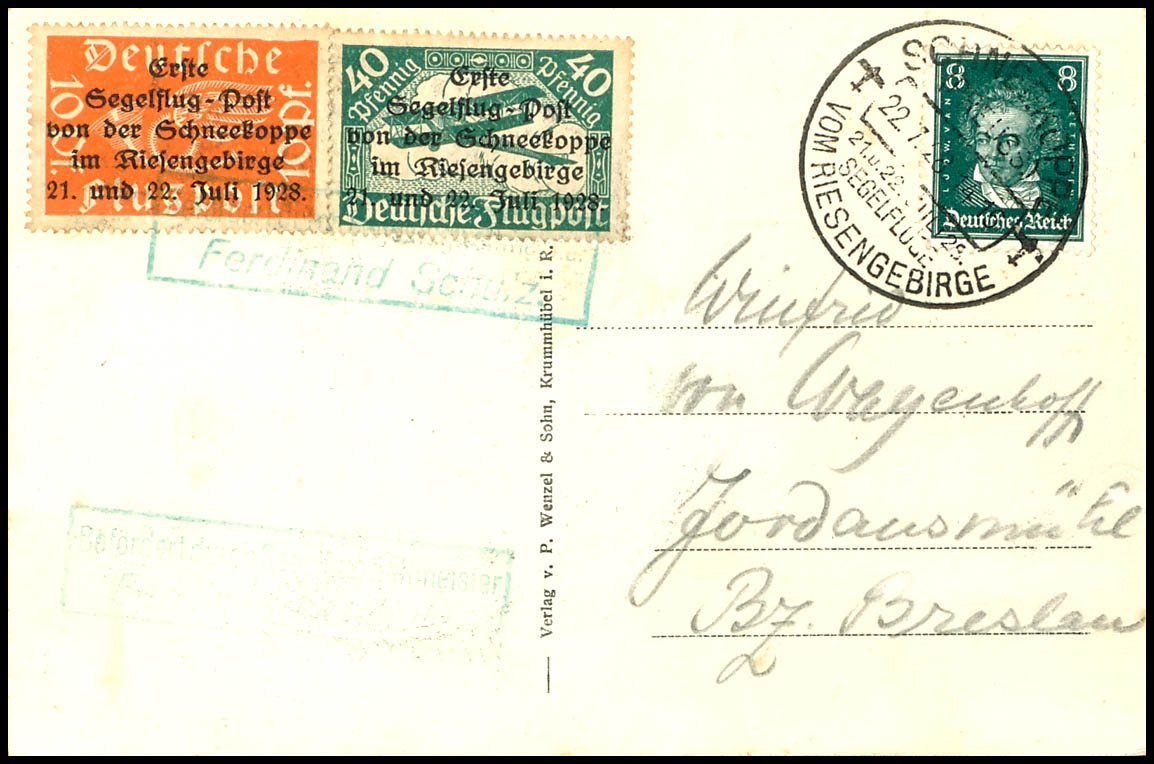 Deutsche
Flugpost
10 Pf.
10 Pf.
Erste
Segelflug-Post
von der Schneekoppe
im Riesengebirge
21. und 22. Juli 1928.
40 40
Pfennig Pfennig
Deutsche Flugpost
Erste
Segelflug-Post
von der Schneekoppe
im Riesengebirge
21. und 22. Juli 1928.
Ferdinand Schulz
Befördert durch meister
Verlag v. P. Wenzel & Sohn, Krummhübel i. R.
8 8
LUDW. VAN
Deutsches Reich
SCHNEEKOPPE
22. 7. 28
21. u. 22.
SEGELFLÜGE
VOM RIESENGEBIRGE
Winfried
von Wagenhoff
Jordansmühl
Bz. Breslau